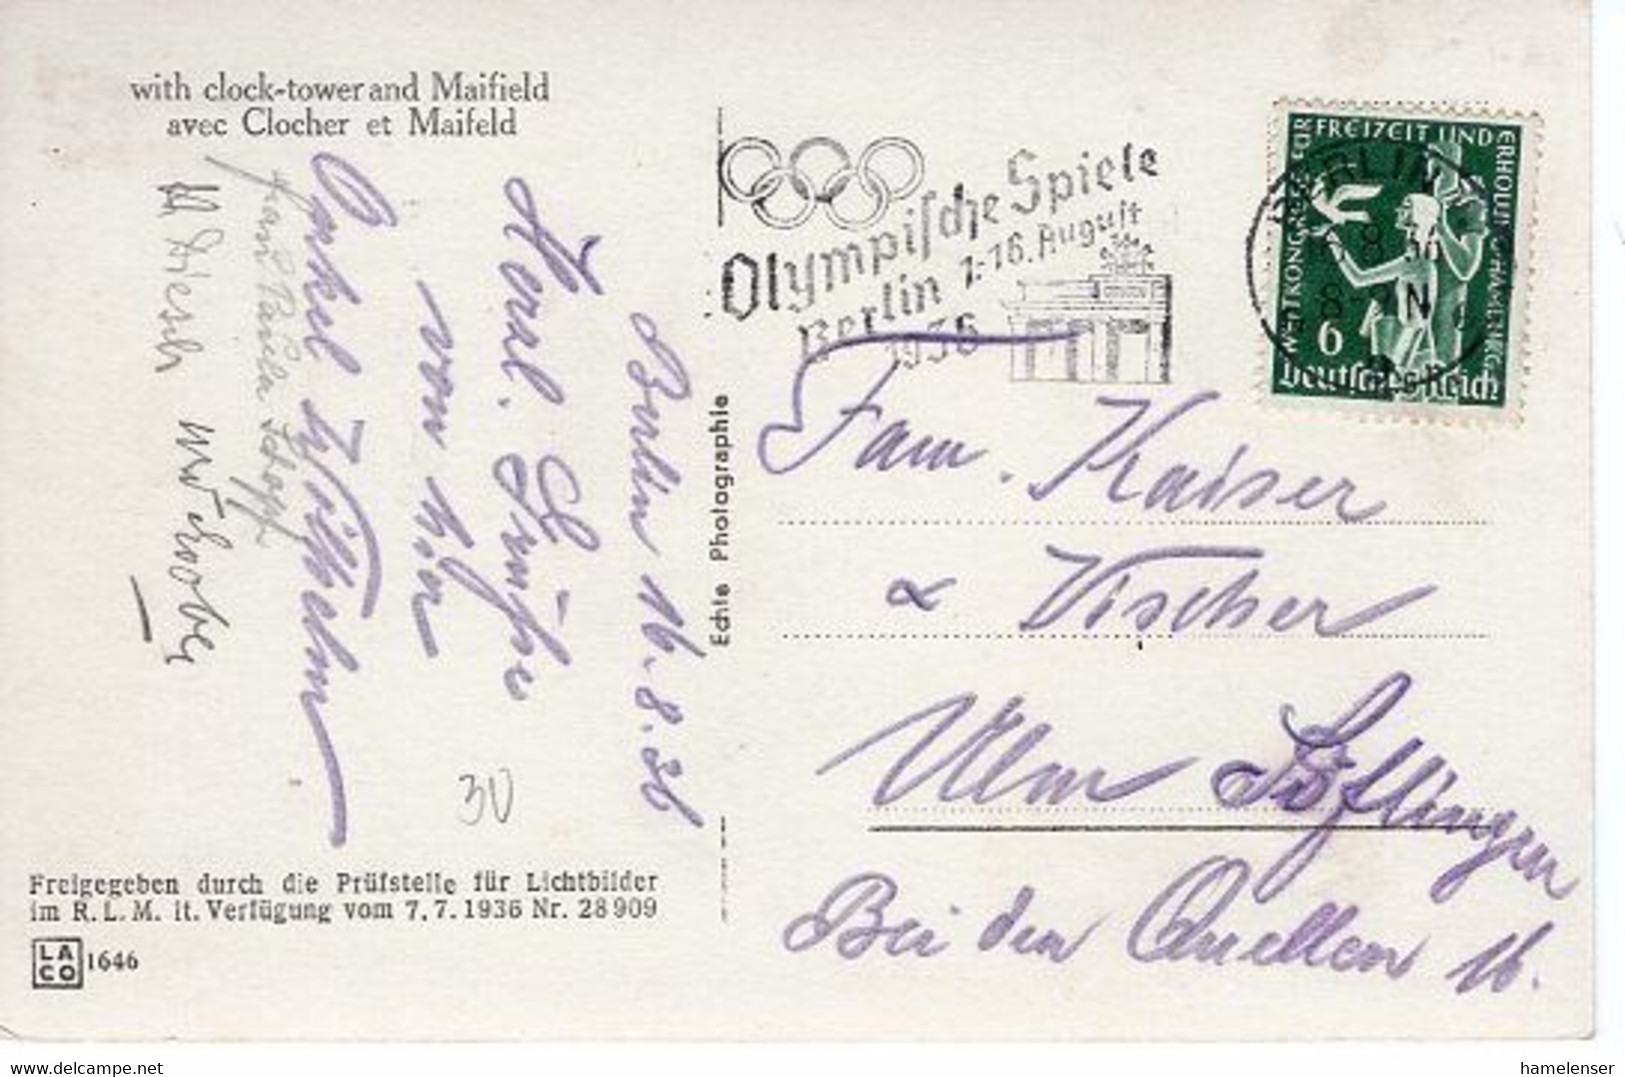 with clock-tower and Maifield
avec Clocher et Maifeld
Berlin 16.8.36
Herzl. Grüße
von hier
Onkel Wilhelm
Frau Paula
Echte Photographie
Olympische Spiele
Berlin 1.-16. August
1936
BERLIN
8 36
8- N
WELTKONGRESS FÜR FREIZEIT UND ERHOLUNG HAMBURG
6
Deutsches Reich
Fam. Kaiser
& Vischer
Ulm Söflingen
Bei den Quellen 16.
30
Freigegeben durch die Prüfstelle für Lichtbilder
im R.L.M. lt. Verfügung vom 7.7.1936 Nr. 28909
LACO 1646
delcampe.net
hamelenser